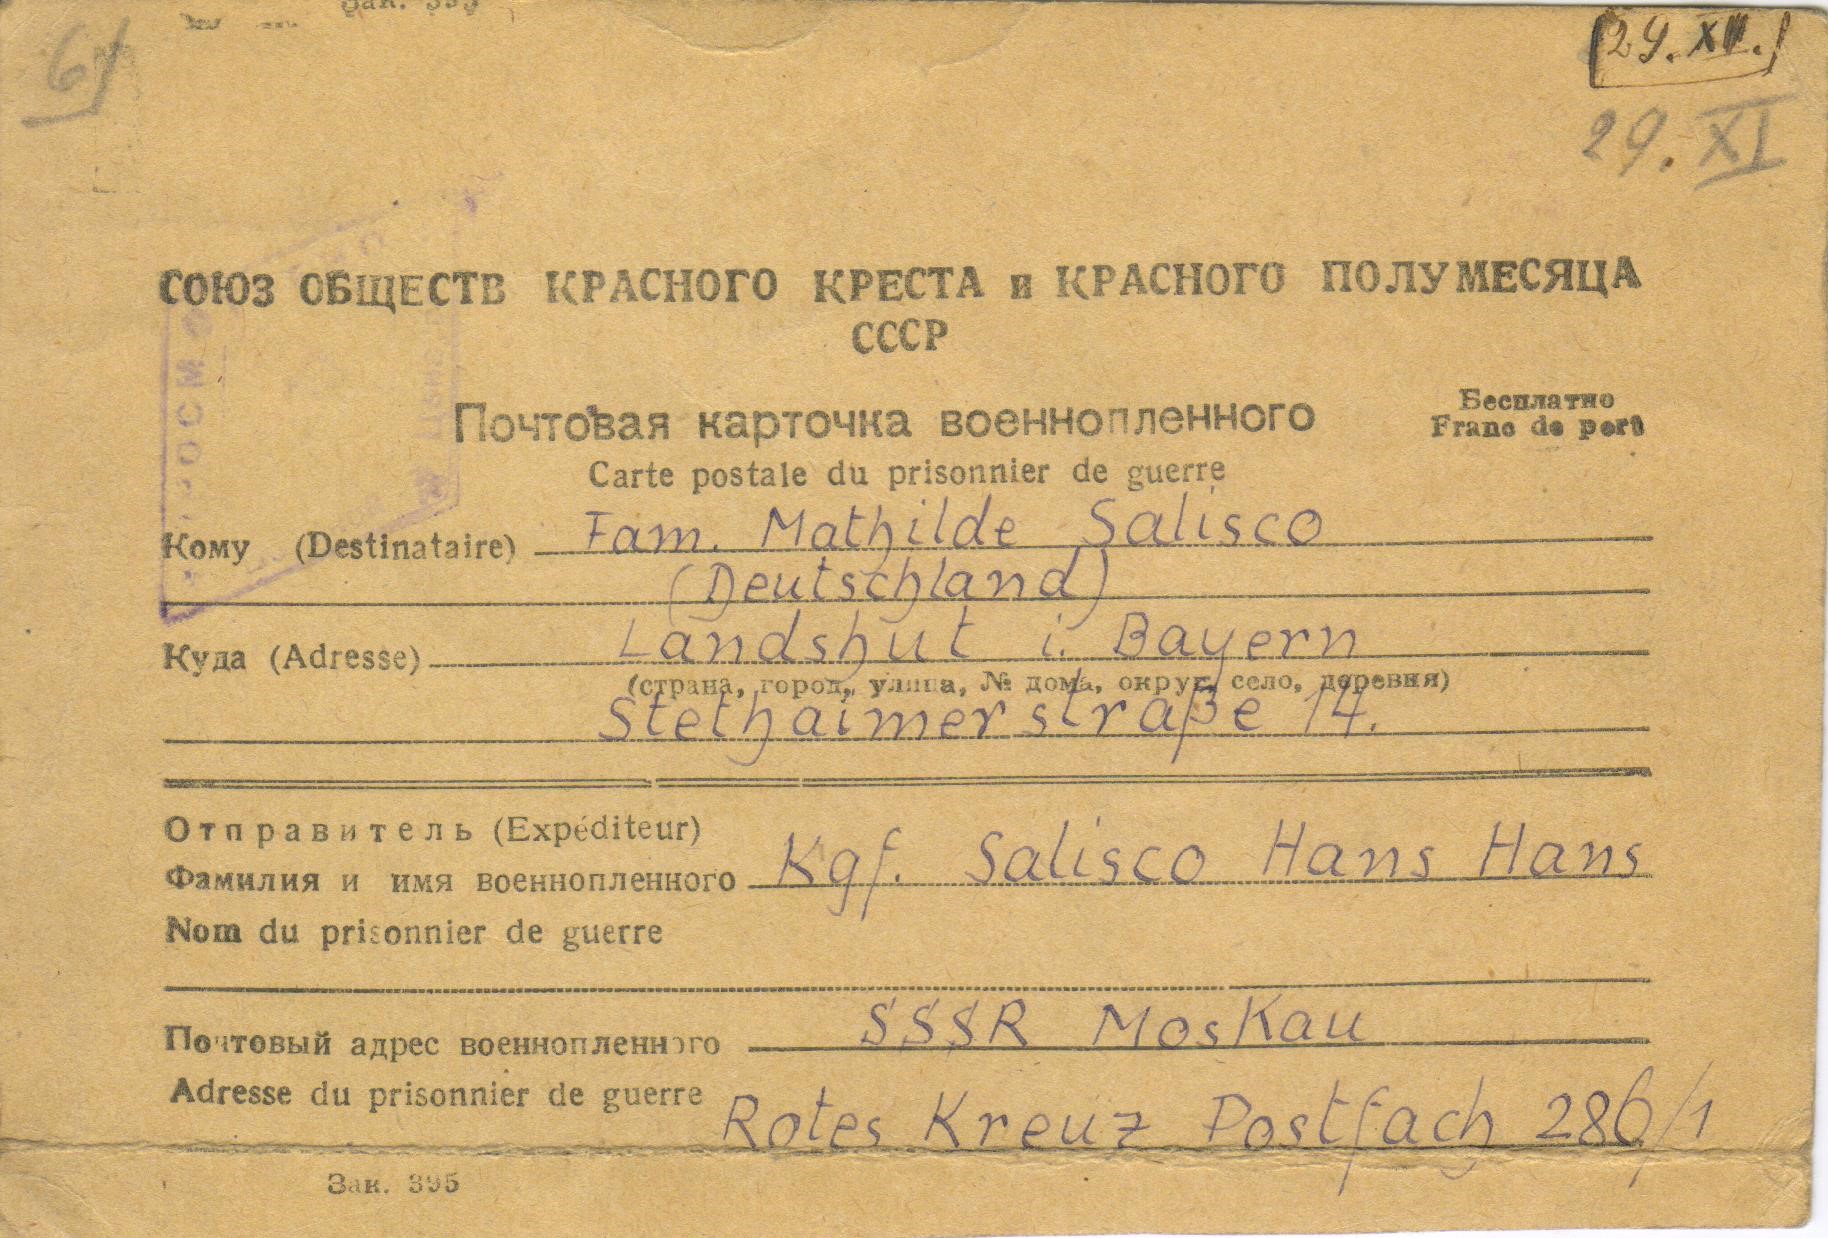 Зак. 395
61
29. XII.
29. XI
СОЮЗ ОБЩЕСТВ КРАСНОГО КРЕСТА и КРАСНОГО ПОЛУМЕСЯЦА
СССР
Почтовая карточка военнопленного
Бесплатно
Franc de port
Carte postale du prisonnier de guerre
Кому (Destinataire) Fam. Mathilde Salisco
(Deutschland)
Куда (Adresse) Landshut i. Bayern
(страна, город, улица, № дома, округ, село, деревня)
Stethaimerstraße 14.
Отправитель (Expéditeur)
Фамилия и имя военнопленного Kgf. Salisco Hans Hans
Nom du prisonnier de guerre
Почтовый адрес военнопленного SSSR Moskau
Adresse du prisonnier de guerre Rotes Kreuz Postfach 286/1
Зак. 395